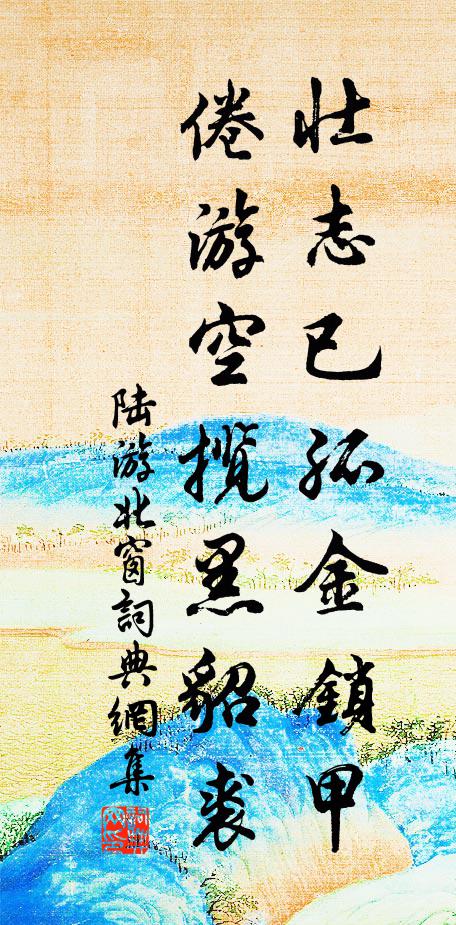 壮志已孤金鎖甲
倦游空攬黑貂裘
陆游北窗詞典網集